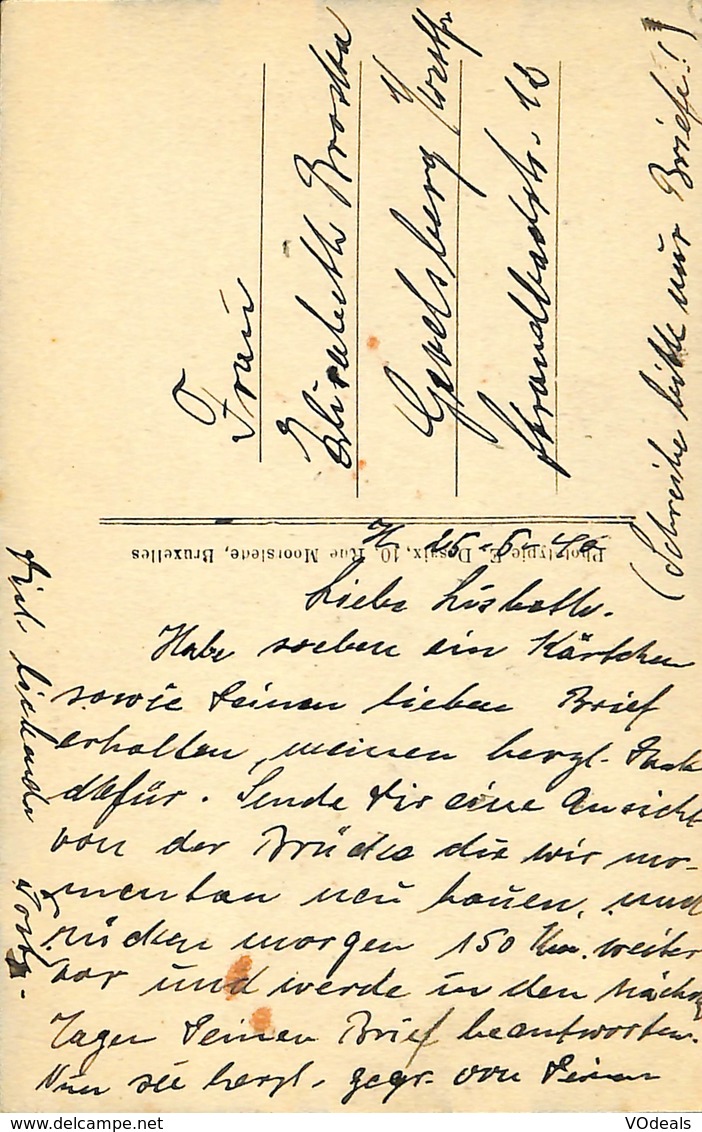 Frau
Elisabeth
Gevelsberg Westf.
Strandbadstr. 18
(Schreibe bitte nur Briefe!)
Phototypie E. Desaix, 10, Rue Moorslede, Bruxelles
26-6-40
Liebe Lisbeth.
Habe soeben ein Kärtchen
sowie Deinen lieben Brief
erhalten, meinen herzl. Dank
dafür. Sende Dir eine Ansicht
von der Brücke die wir mo-
mentan neu bauen, und
rücken morgen 150 Km. weiter
vor und werde in den nächsten
Tagen Deinen Brief beantworten.
Nun sei herzl. gegr. von Deinem
Dich liebenden
VDeals